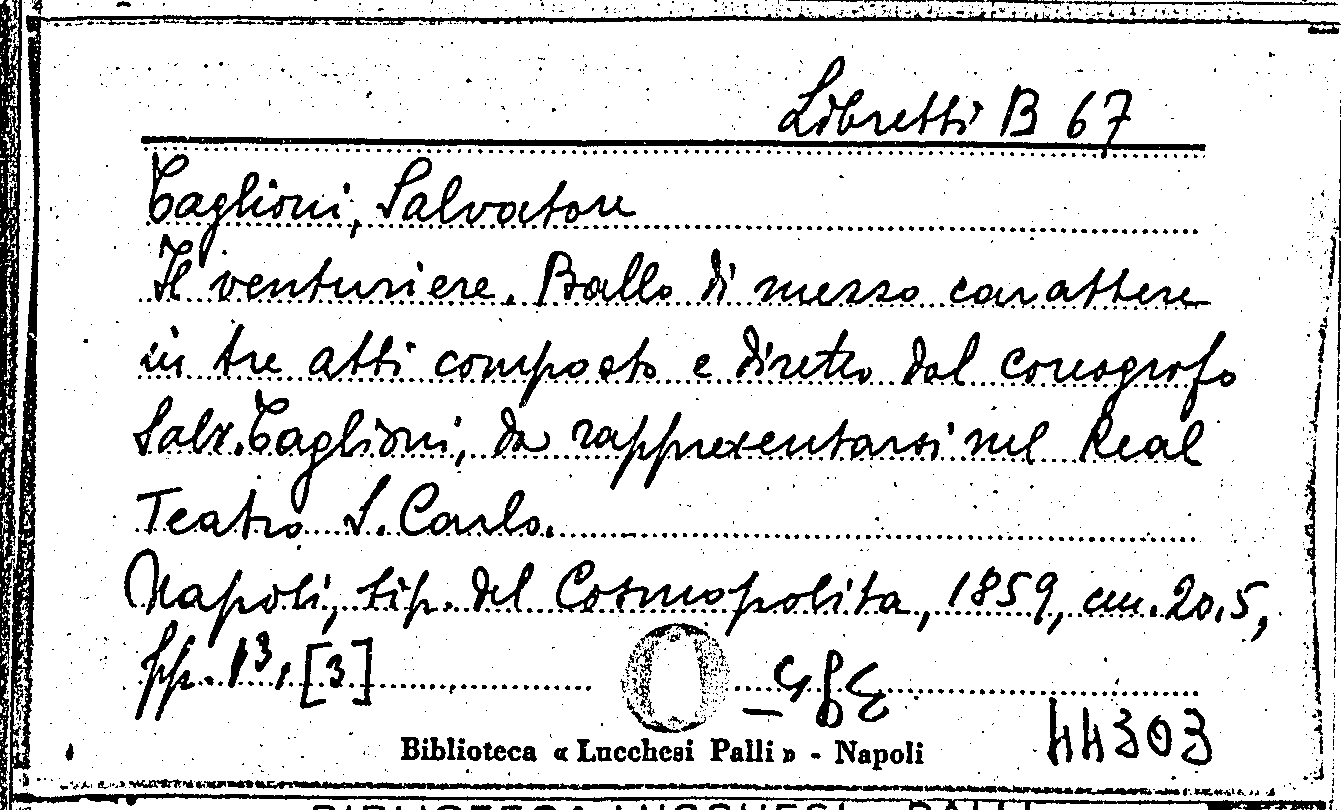 Libretti B 67
Taglioni, Salvatore
Il venturiere. Ballo di mezzo carattere
in tre atti composto e diretto dal coreografo
Salv. Taglioni, da rappresentarsi nel Real
Teatro S. Carlo.
Napoli, tip. del Cosmopolita, 1859, cm. 20,5,
pp. 13, [3]
Biblioteca « Lucchesi Palli » - Napoli
44303
BIBLIOTECA LUCCHESI - PALLI